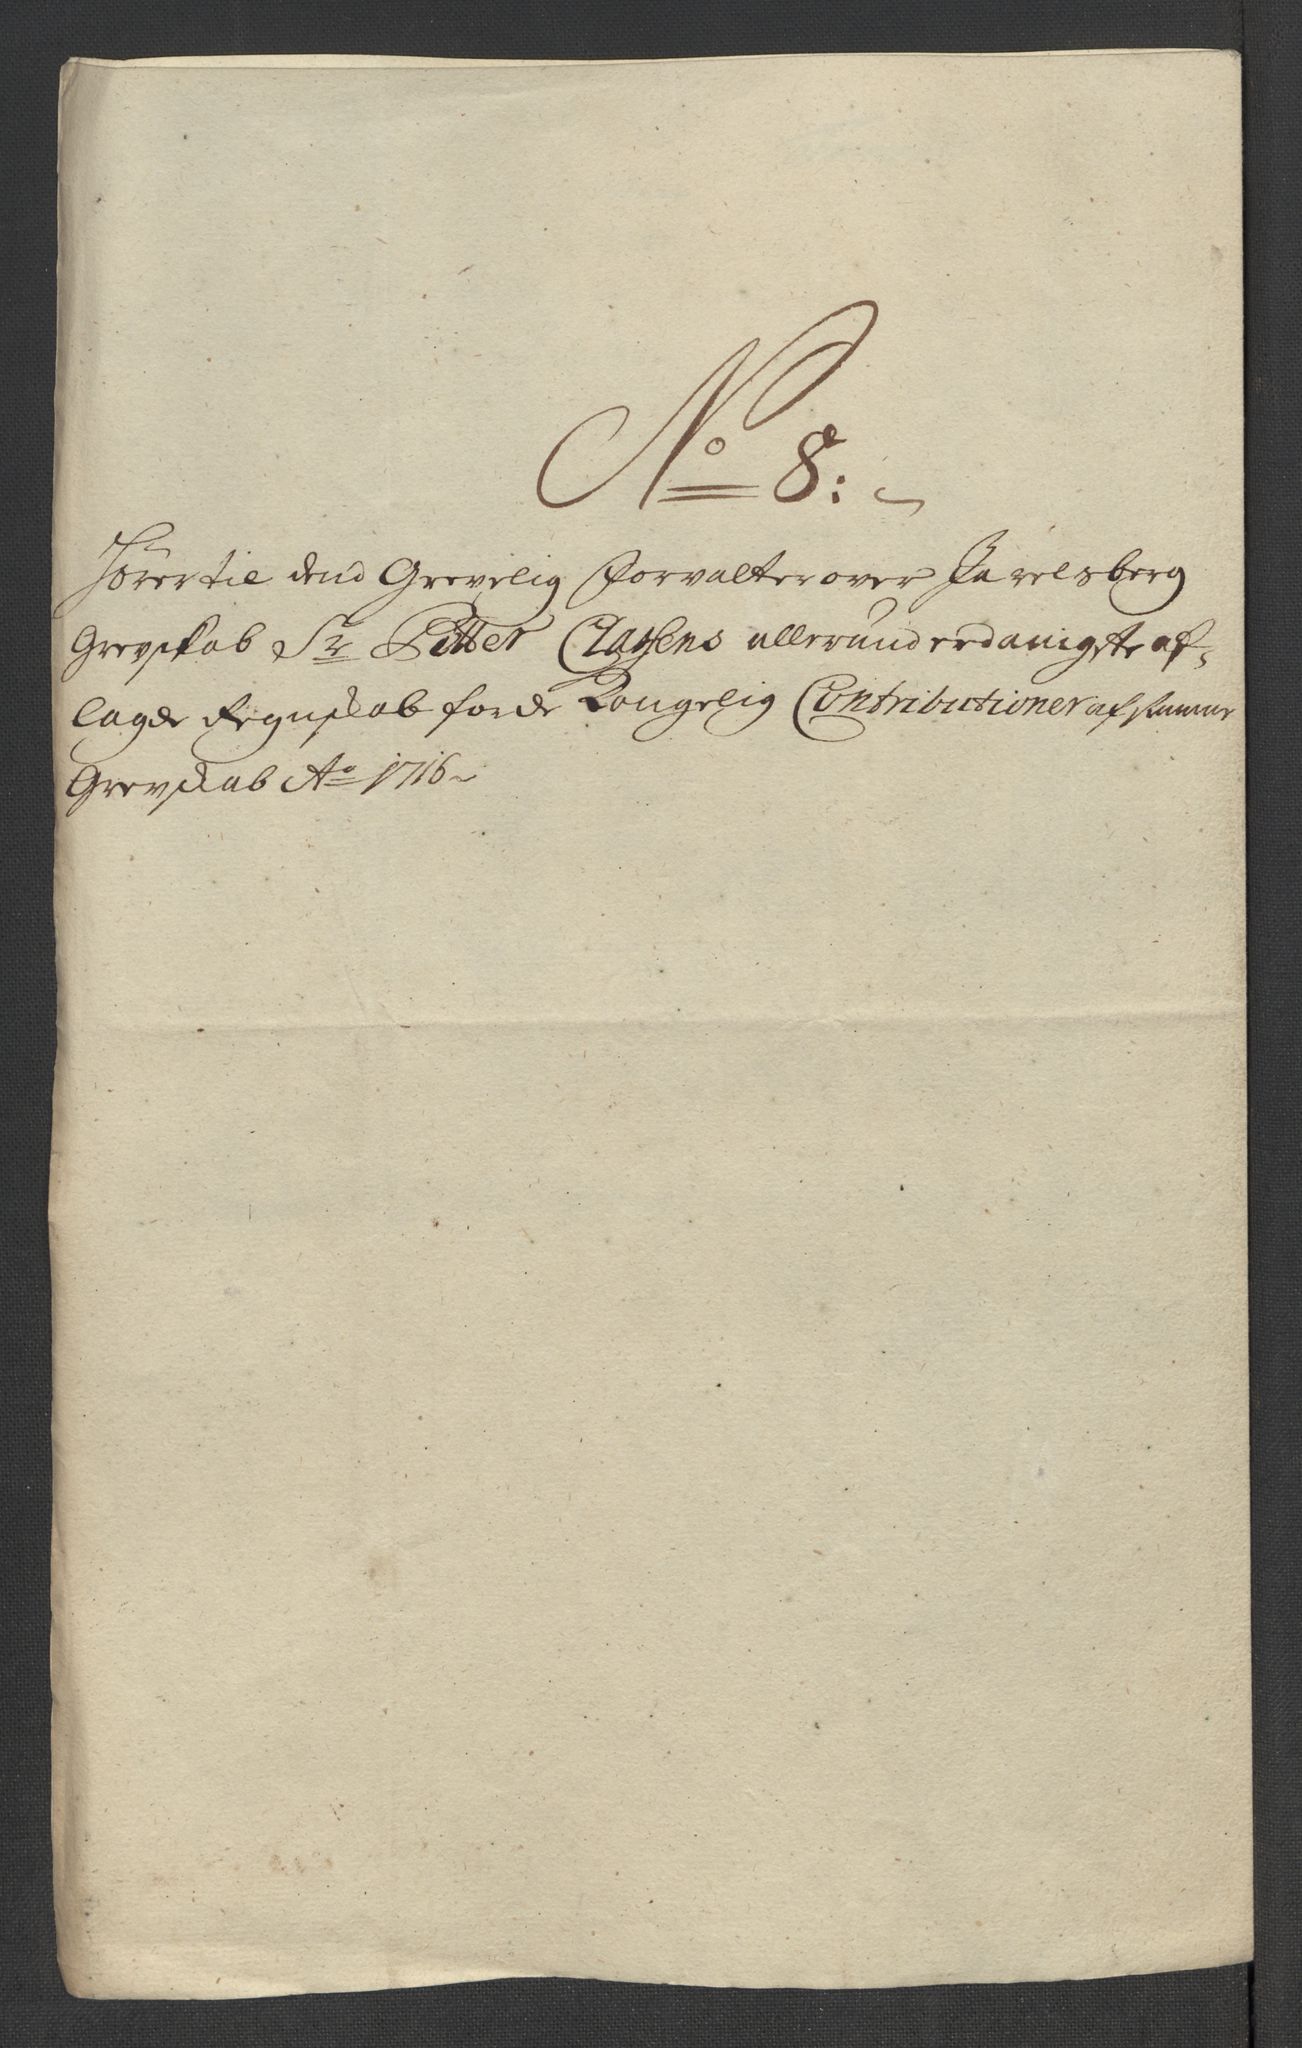 No 8:
Hörer til dend Grevelig Forvalter over Jarelsberg
Grevskab Sr Pitter Claÿsens allerunderdanigste af-
lagde Regnskab for de Kongelig Contributioner af samme
Grevskab Ao 1716